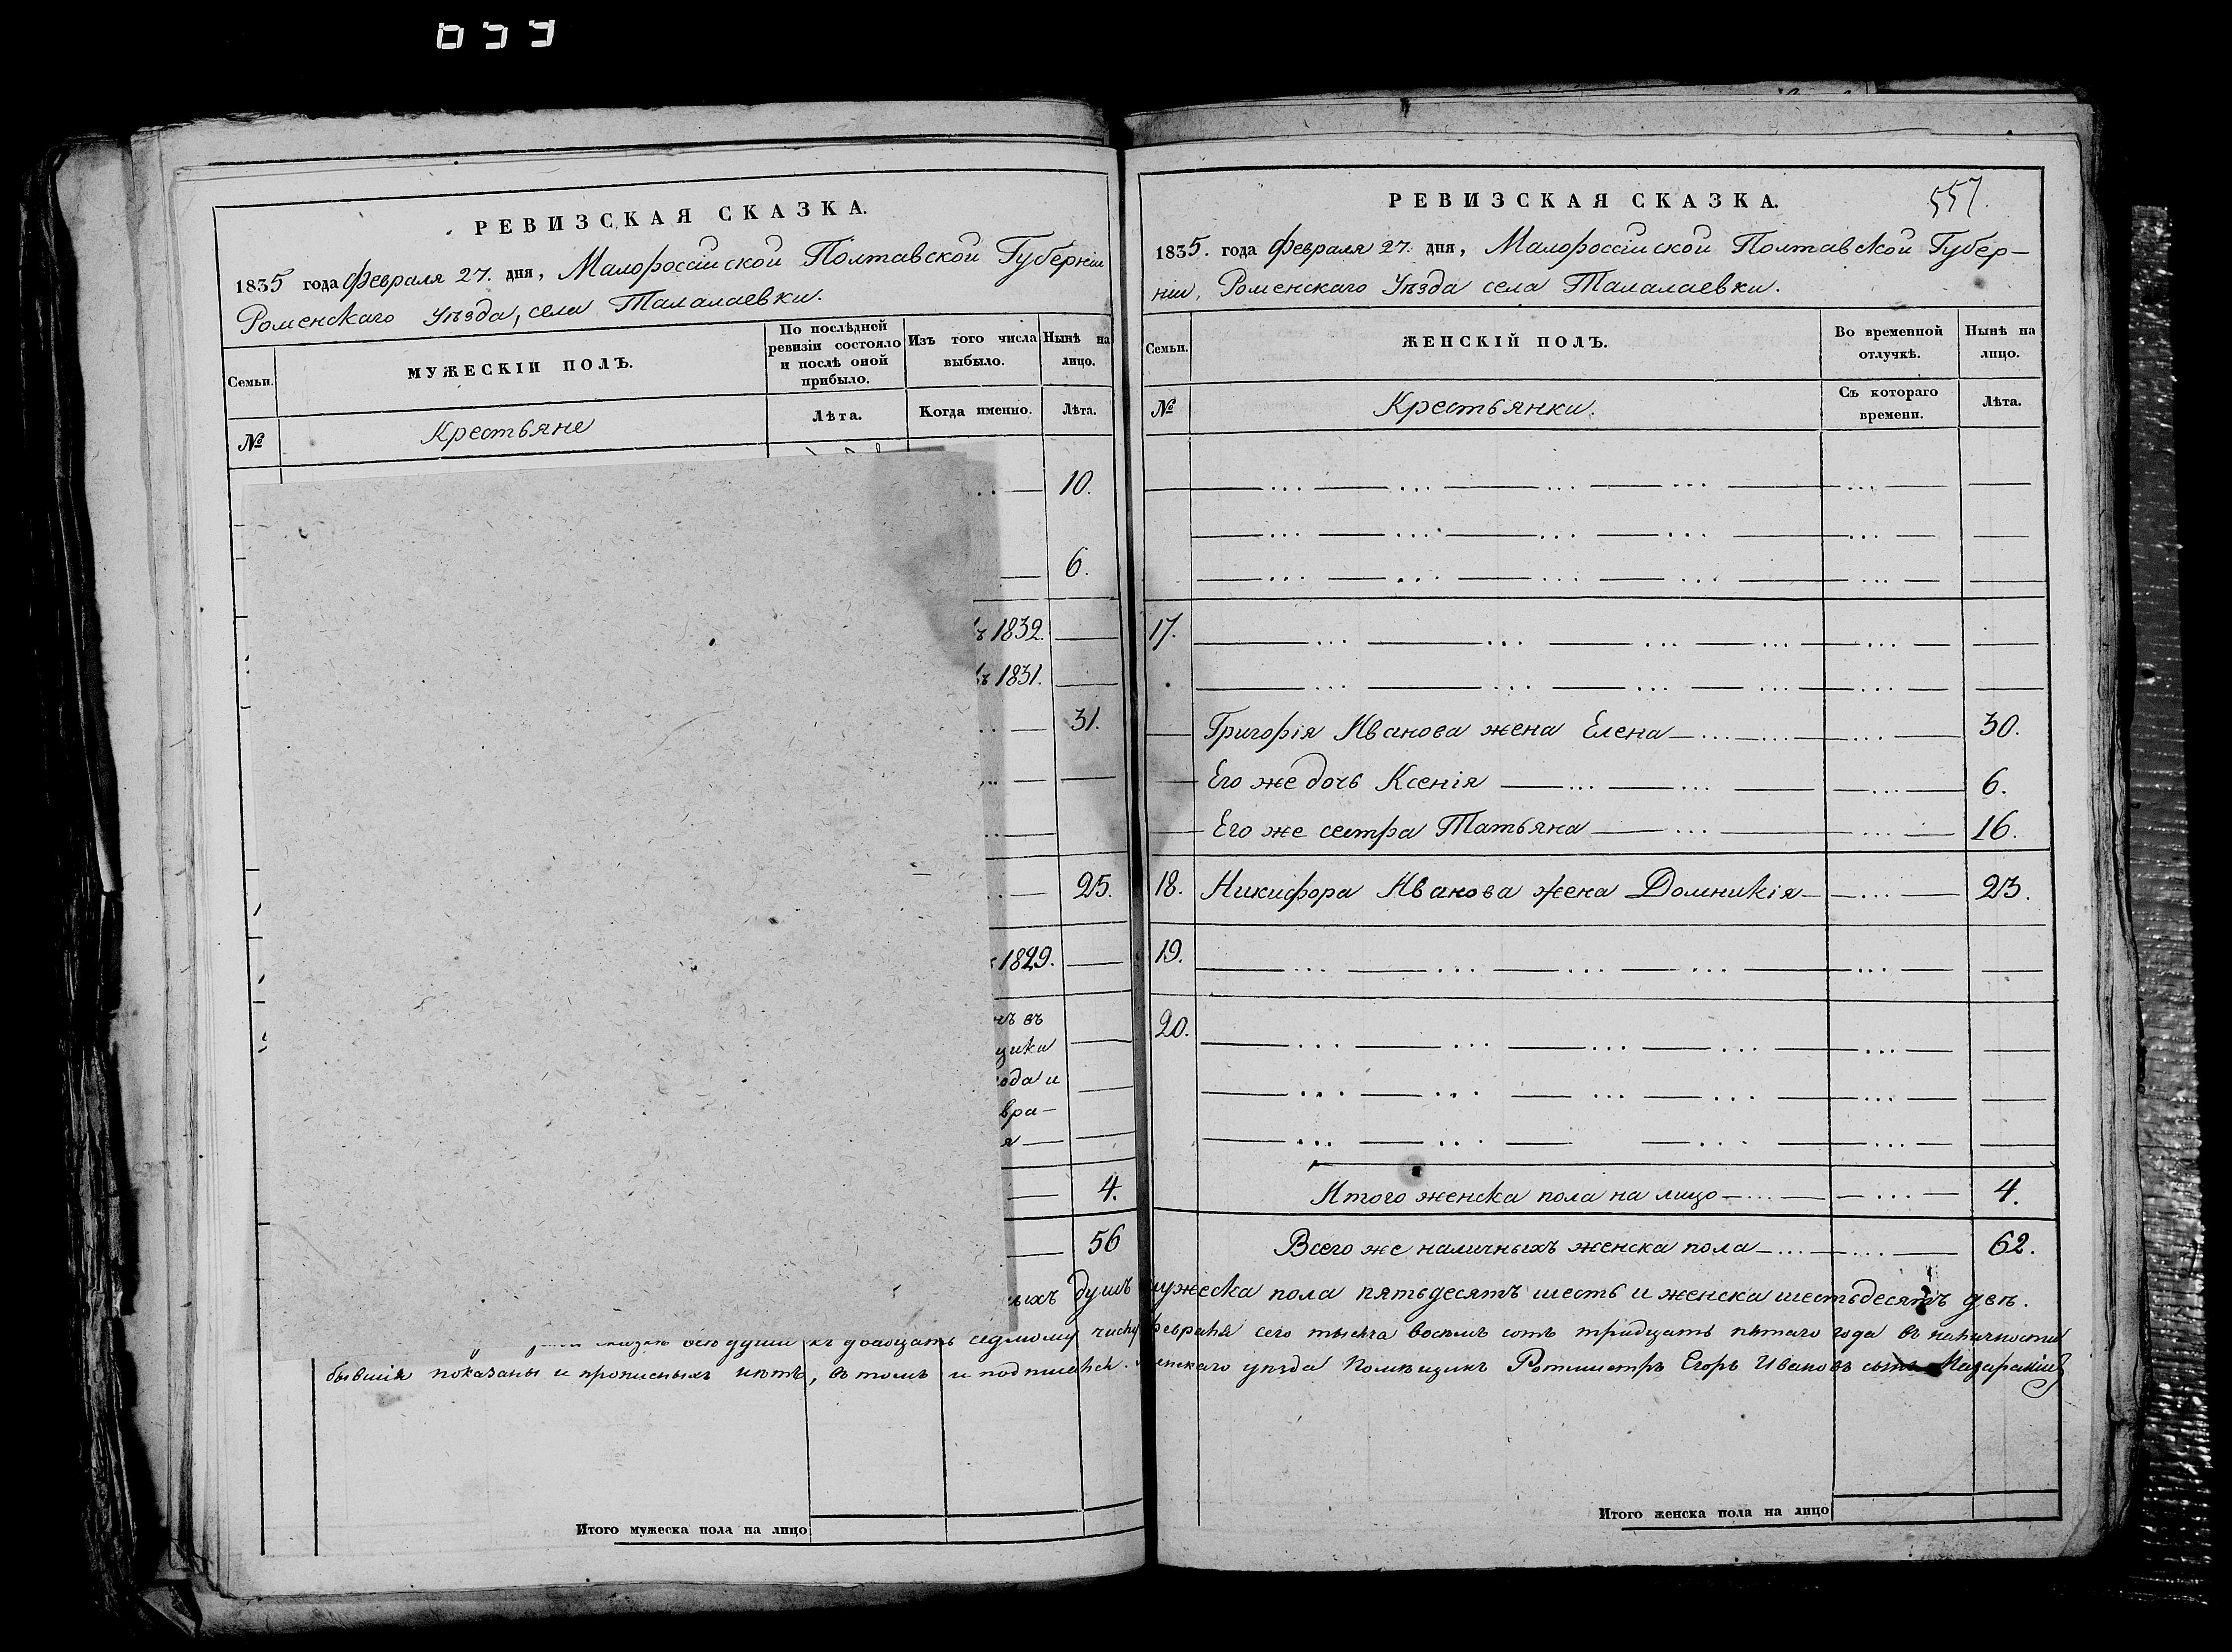 РЕВИЗСКАЯ СКАЗКА.
1835 года Февраля 27. дня, Малороссійской Полтавской Губерніи
Роменскаго Уѣзда, села Талалаевки.
Семьи.
МУЖЕСКІЙ ПОЛЪ.
По послѣдней ревизіи состояло и послѣ оной прибыло.
Изъ того числа выбыло.
Нынѣ на лицо.
№
Крестьяне
Лѣта.
Когда именно.
Лѣта.
10.
6.
1832.
1831.
31.
25.
1829.
въ
и
4.
56
душъ
бывшія показаны и прописныхъ нѣтъ, въ томъ и подписался.
Итого мужеска пола на лицо
557.
РЕВИЗСКАЯ СКАЗКА.
1835. года Февраля 27. дня, Малоросійской Полтавской Губер-
ніи, Роменскаго Уѣзда села Талалаевки.
Семьи.
ЖЕНСКІЙ ПОЛЪ.
Во временной отлучкѣ.
Нынѣ на лицо.
№
Крестьянки.
Съ котораго времени.
Лѣта.
17.
Григорія Иванова жена Елена 30.
Его же дочь Ксенія 6.
Его же сестра Татьяна 16.
18. Никифора Иванова жена Домникія 23.
19.
20.
Итого женска пола на лицо 4.
Всего же наличныхъ женска пола 62.
мужеска пола пятьдесятъ шесть и женска шестьдесятъ двѣ.
душъ къ двадцать седьмому числу февраля сего тысяча восемь сотъ тридцать пятаго года въ наличности
уѣзда Помѣщикъ Ротмистръ Егоръ Ивановъ сынъ
Итого женска пола на лицо